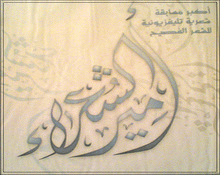 أضخم مسابقة
شعرية تليفزيونية
للشعر الفصيح
أمير الشعراء